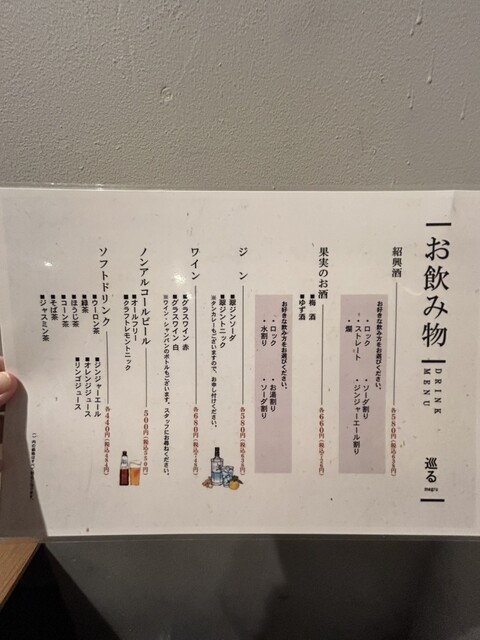 お飲み物
DRINK
MENU
巡る
meguru
紹興酒 各580円(税込638円)
お好きな飲み方をお選びください。
・ロック
・ストレート
・燗
・ソーダ割り
・ジンジャーエール割り
果実のお酒 各660円(税込726円)
■梅 酒
■ゆず酒
お好きな飲み方をお選びください。
・ロック
・水割り
・お湯割り
・ソーダ割り
ジン 各580円(税込638円)
■翠ジンソーダ
■翠ジントニック
※タンカレーもございますので、お申し付けください。
ワイン 各680円(税込748円)
■グラスワイン 赤
■グラスワイン 白
※ワイン・シャンパンのボトルもございます。スタッフにお尋ねください。
ノンアルコールビール 500円(税込550円)
■オールフリー
■クラフトレモントニック
ソフトドリンク 各440円(税込484円)
■ウーロン茶
■緑茶
■ほうじ茶
■コーン茶
■そば茶
■ジャスミン茶
■ジンジャーエール
■オレンジジュース
■リンゴジュース